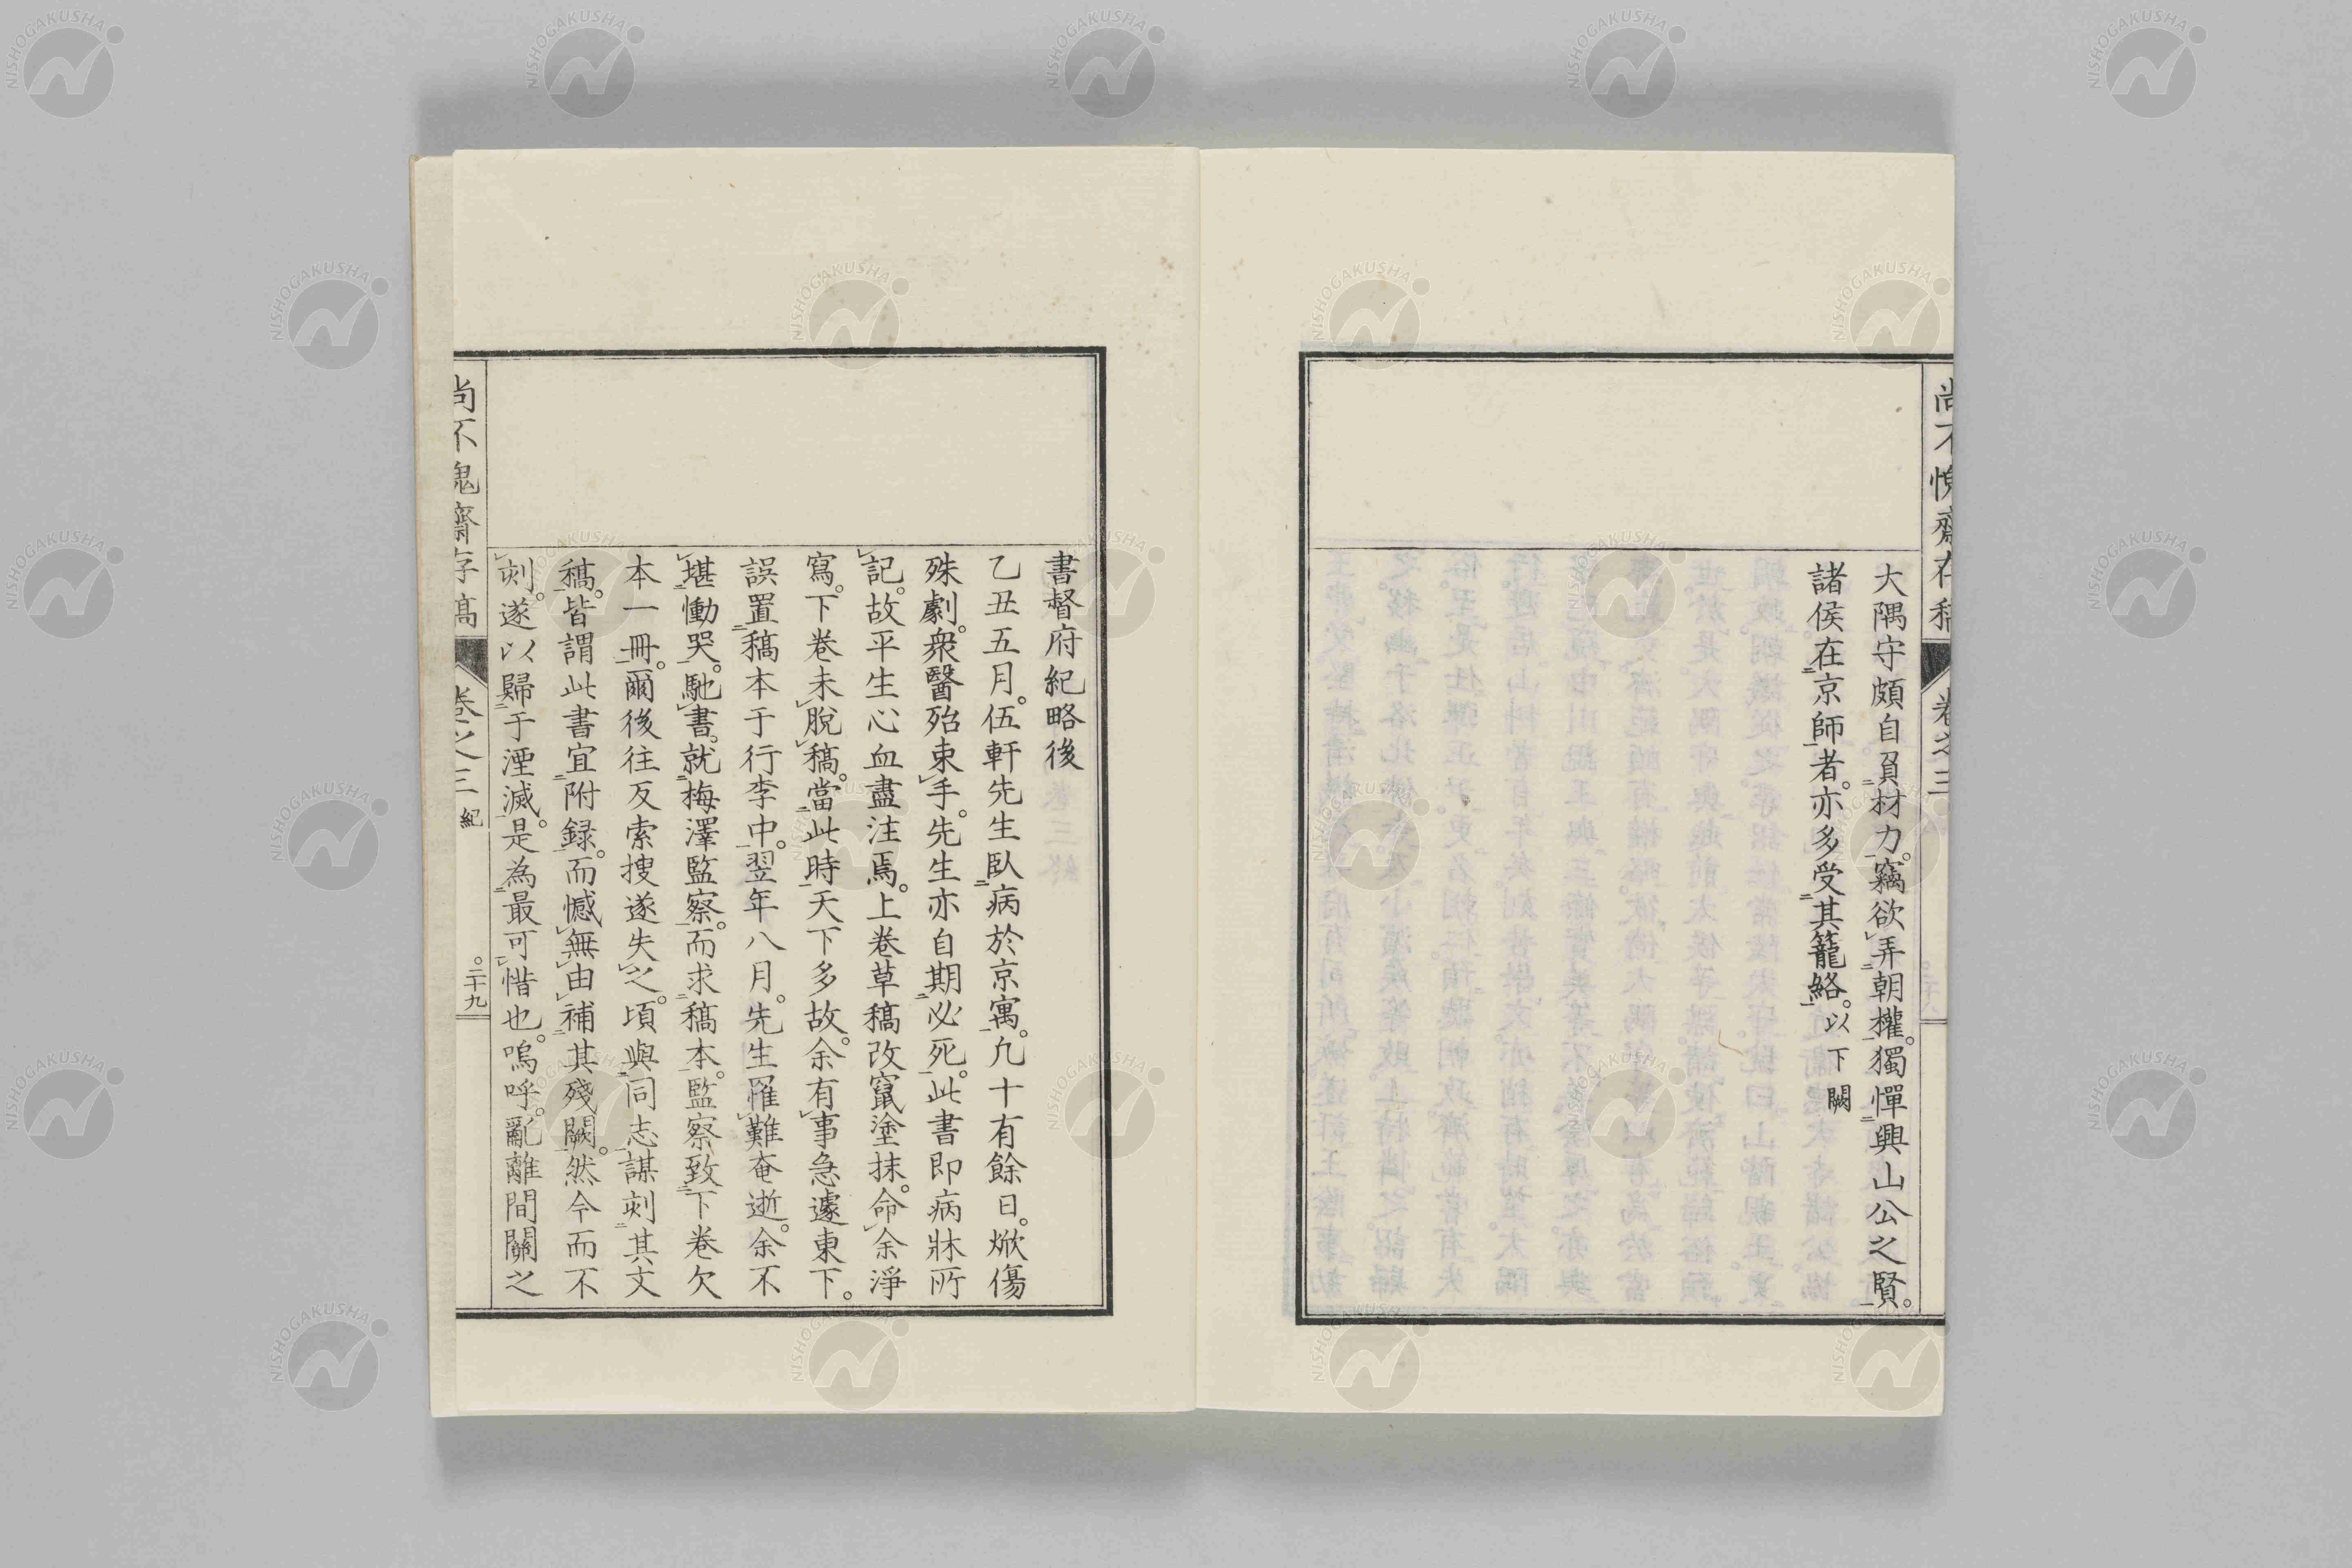 尚不愧齋存稿 卷之三
大隅守頗自負材力。竊欲弄朝權。獨憚興山公之賢。
諸侯在京師者。亦多受其籠絡。以下闕
書督府紀略後
乙丑五月。伍軒先生臥病於京寓。凢十有餘日。焮傷
殊劇。衆醫殆束手。先生亦自期必死。此書即病牀所
記。故平生心血盡注焉。上卷草稿改竄塗抹。命余淨
寫。下卷未脫稿。當此時天下多故。余有事急遽東下。
誤置稿本于行李中。翌年八月。先生罹難奄逝。余不
堪慟哭。馳書。就梅澤監察。而求稿本。監察致下卷欠
本一冊。爾後往反索搜遂失之。頃與同志謀刻其文
稿。皆謂此書宜附録。而憾無由補其殘闕。然今而不
刻。遂以歸于湮滅。是為最可惜也。嗚呼。亂離間關之
尚不愧齋存稿 卷之三 紀 二十九
NISHOGAKUSHA